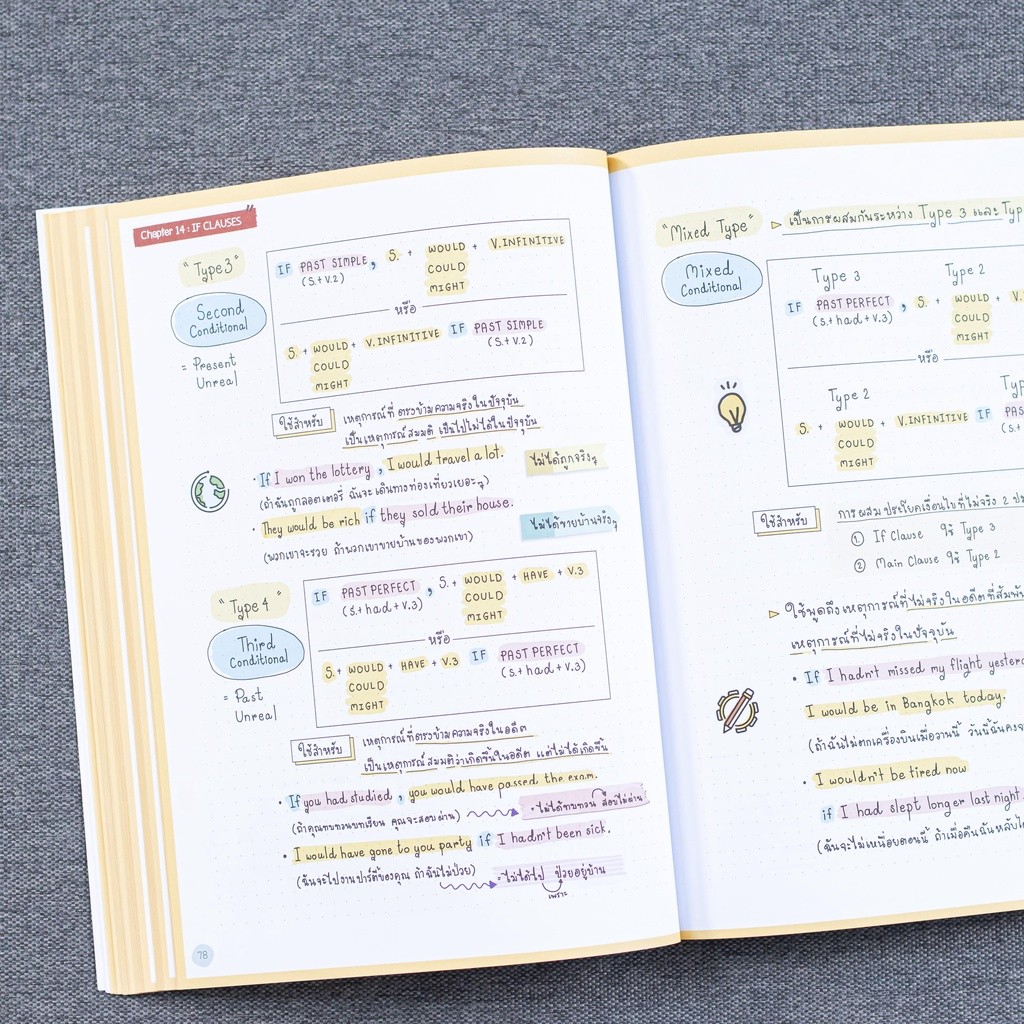 Chapter 14 : IF CLAUSES
"Type 3"
Second
Conditional
= Present
Unreal
IF PAST SIMPLE , S. + WOULD + V.INFINITIVE
(S.+V.2) COULD
MIGHT
หรือ
S. + WOULD + V.INFINITIVE IF PAST SIMPLE
COULD (S.+V.2)
MIGHT
ใช้สำหรับ
เหตุการณ์ที่ ตรงข้ามความจริงในปัจจุบัน
เป็นเหตุการณ์สมมติ เป็นไปไม่ได้ในปัจจุบัน
• If I won the lottery , I would travel a lot.
ไม่ได้ถูกจริงๆ
(ถ้าฉันถูกลอตเตอรี่ ฉันจะเดินทางท่องเที่ยวเยอะๆ)
• They would be rich if they sold their house.
ไม่ได้ขายบ้านจริงๆ
(พวกเขาจะรวย ถ้าพวกเขาขายบ้านของพวกเขา)
"Type 4"
Third
Conditional
= Past
Unreal
IF PAST PERFECT , S. + WOULD + HAVE + V.3
(S.+had+V.3) COULD
MIGHT
หรือ
S. + WOULD + HAVE + V.3 IF PAST PERFECT
COULD (S.+had+V.3)
MIGHT
ใช้สำหรับ
เหตุการณ์ที่ตรงข้ามความจริงในอดีต
เป็นเหตุการณ์สมมติว่าเกิดขึ้นในอดีต แต่ไม่ได้เกิดขึ้น
• If you had studied , you would have passed the exam.
(ถ้าคุณทบทวนบทเรียน คุณจะสอบผ่าน)
• ไม่ได้ทบทวน สอบไม่ผ่าน
• I would have gone to you party if I hadn't been sick.
(ฉันจะไปงานปาร์ตี้ของคุณ ถ้าฉันไม่ป่วย)
= ไม่ได้ไป ป่วยอยู่บ้าน
เพราะ
78
"Mixed Type"
เป็นการผสมกันระหว่าง Type 3 และ Typ
Mixed
Conditional
Type 3 Type 2
IF PAST PERFECT , S. + WOULD + V.
(S.+had+V.3) COULD
MIGHT
หรือ
Type 2 Typ
S. + WOULD + V.INFINITIVE IF PAS
COULD (S.+
MIGHT
ใช้สำหรับ
การผสมประโยคเงื่อนไขที่ไม่จริง 2 ป
① If Clause ใช้ Type 3
② Main Clause ใช้ Type 2
ใช้พูดถึงเหตุการณ์ที่ไม่จริงในอดีตที่สัมพัน
เหตุการณ์ที่ไม่จริงในปัจจุบัน
• If I hadn't missed my flight yesterd
I would be in Bangkok today.
(ถ้าฉันไม่ตกเครื่องบินเมื่อวานนี้ วันนี้ฉันคงจ
• I wouldn't be tired now
if I had slept longer last night.
(ฉันจะไม่เหนื่อยตอนนี้ ถ้าเมื่อคืนฉันหลับได